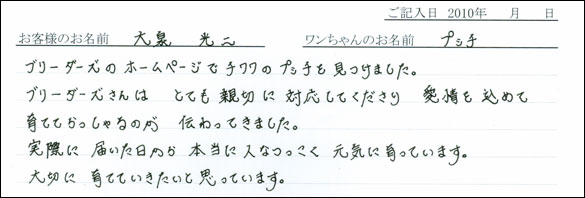 ご記入日 2010年 月 日
お客様のお名前 大泉 光二 ワンちゃんのお名前 プチ
ブリーダーズのホームページでチワワのプチを見つけました。
ブリーダーズさんは とても親切に対応してくださり 愛情を込めて
育ててらっしゃるのが 伝わってきました。
実際に届いた日から 本当に人なつっこく 元気に育っています。
大切に育てていきたいと思っています。